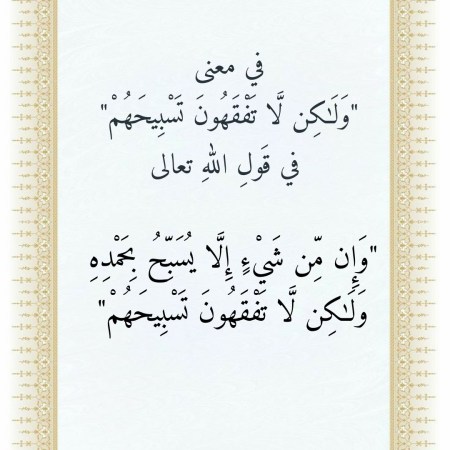 في معنى
"وَلَٰكِن لَّا تَفْقَهُونَ تَسْبِيحَهُمْ"
في قَولِ اللهِ تعالى
"وَإِن مِّن شَيْءٍ إِلَّا يُسَبِّحُ بِحَمْدِهِ
وَلَٰكِن لَّا تَفْقَهُونَ تَسْبِيحَهُمْ"